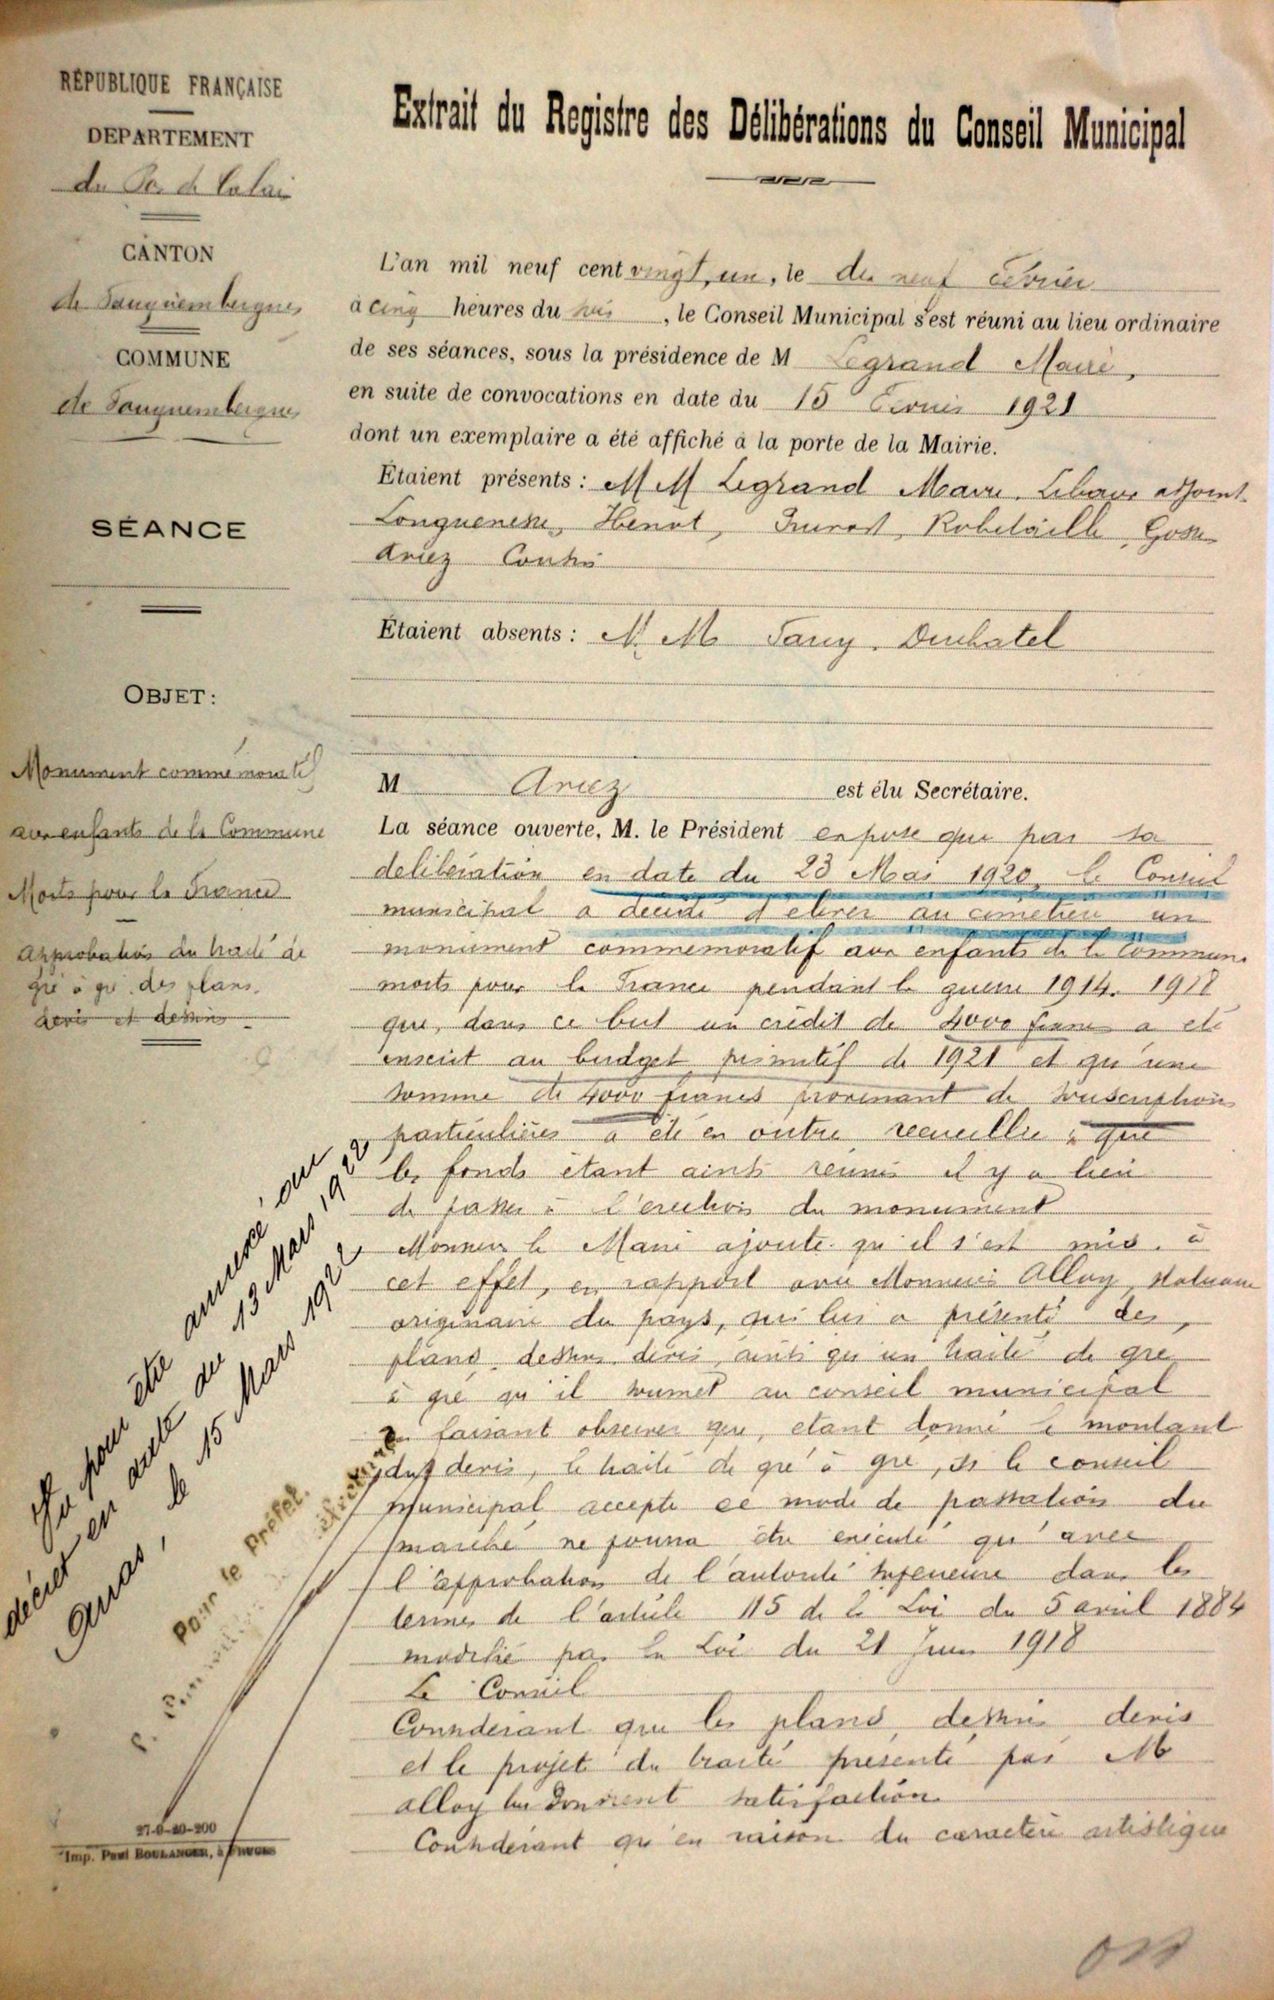 RÉPUBLIQUE FRANÇAISE
DEPARTEMENT
du Pas de Calais
CANTON
de Fauquembergues
COMMUNE
de Fauquembergues
SÉANCE
OBJET :
Monument commémoratif
aux enfants de la Commune
Morts pour la France
approbation du traité de
gré à gré des plans.
devis et dessins
Extrait du Registre des Délibérations du Conseil Municipal
L'an mil neuf cent vingt, un, le dix neuf Février
à cinq heures du soir, le Conseil Municipal s'est réuni au lieu ordinaire
de ses séances, sous la présidence de M Legrand Maire,
en suite de convocations en date du 15 Février 1921
dont un exemplaire a été affiché à la porte de la Mairie.
Étaient présents : MM Legrand Maire. adjoint.
Longuenesse, Henot, Robitaille, Gosse
Ariez
Étaient absents : M. M Duchatel
M Ariez est élu Secrétaire.
La séance ouverte, M. le Président expose que par sa
deliberation en date du 23 Mai 1920, le Conseil
municipal a décidé d'elever au cimetière un
monument commemoratif aux enfants de la Commune
morts pour la France pendant la guerre 1914. 1918
que, dans ce but un crédit de 4000 francs a été
inscrit au budget primitif de 1921 et qu'une
somme de 4000 francs provenant de souscriptions
particulières a été en outre recueillie ; que
les fonds étant ainsi reunis il y a lieu
de passer à l'erection du monument
Monsieur le Maire ajoute qu'il s'est mis, à
cet effet, en rapport avec Monsieur Alloy, statuaire
originaire du pays, qui lui a présenté des
plans, dessins, devis, ainsi qu'un traité de gre
à gré qu'il soumet au conseil municipal
en faisant observer que, etant donné le montant
du devis, le traité de gré à gré, si le conseil
municipal accepte ce mode de passation du
marché ne pourra être exécuté qu'avec
l'approbation de l'autorité superieure dans les
termes de l'article 115 de la Loi du 5 avril 1884
modifié par la Loi du 21 Juin 1918
Le Conseil
Considerant que les plans, dessins devis
et le projet du traité présenté par M
alloy lui donnent satisfaction
Considerant qu'en raison du caractère artistique
Vu pour être annexé au
décret en date du 13 Mars 1922
Arras, le 15 Mars 1922
Pour le Préfet.
27-9-20-200
Imp. Paul BOULANGER, à FRUGES